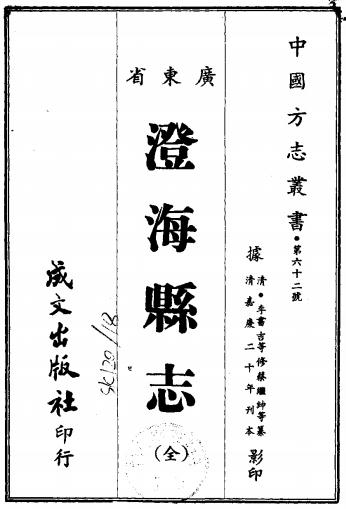 中國方志叢書・第六十二號
據
清・李書吉等修蔡繼紳等纂
清嘉慶二十年刊本
影印
廣東省
澄海縣志
(全)
成文出版社印行